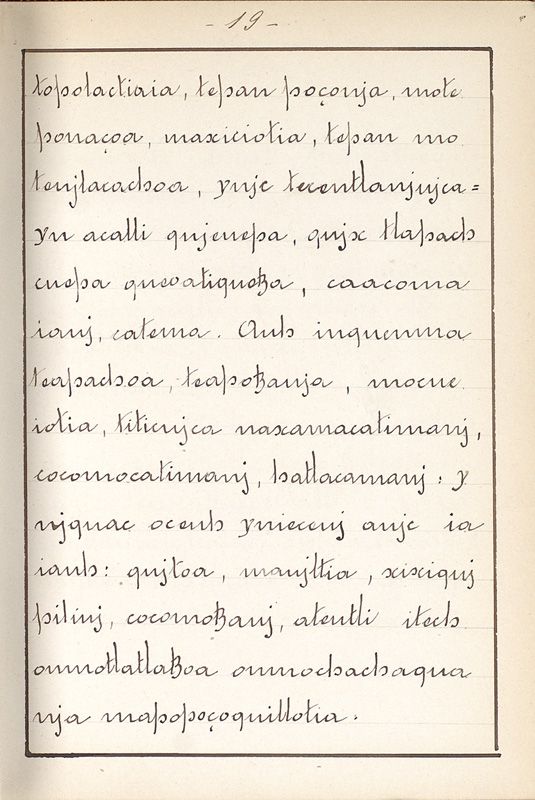 - 19 -
topolactiaia, tepan poçonja, mote
ponaçoa, maxiciotia, tepan mo
tenjlacachoa, ynje tecentlanjujca=
yn acalli qujcuepa, qujx tlapach
cuepa quevatiqueßa, caacoma
ianj, catema. Auh inquenma
teapachoa, teapoßanja, mocue
iotia, titicujca naxamacatimanj,
cocomocatimanj, hatlacamanj: y
njquac ocenh ynieccuj anje ia
iauh: qujtoa, maujltia, xixiquj
pilinj, cocomoßanj, atentli itech
ommotlatlaßoa ommochachaqua
nja mapopoçoquillotia.